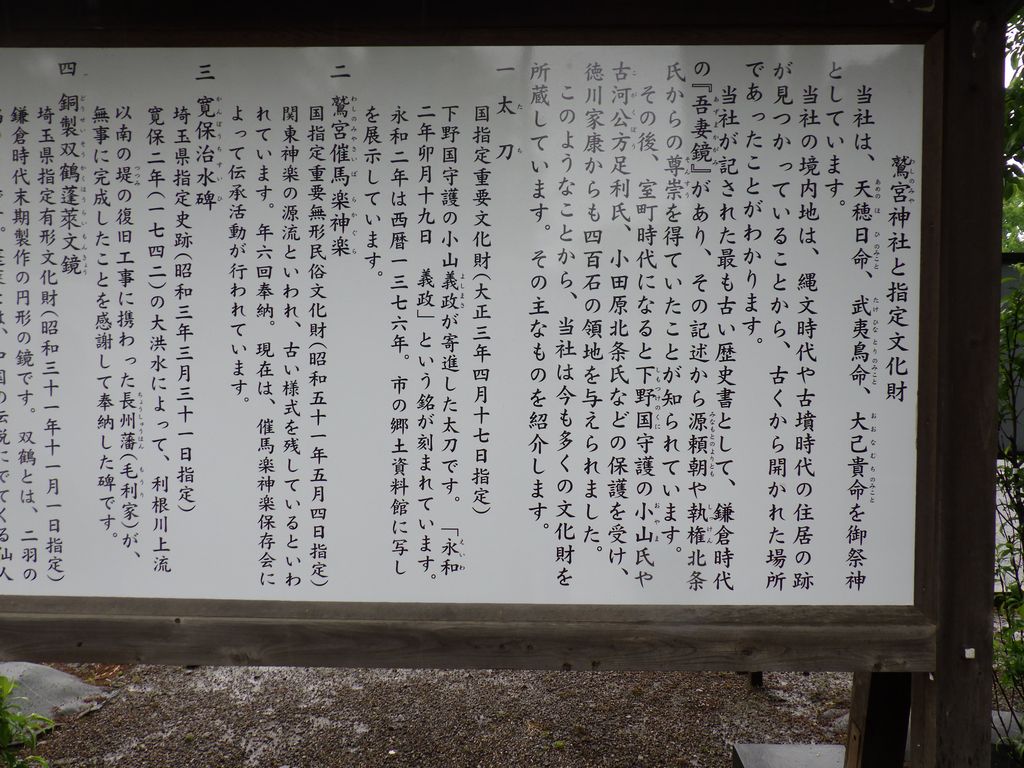 鷲宮神社と指定文化財
当社は、天穂日命、武夷鳥命、大己貴命を御祭神
としています。
当社の境内地は、縄文時代や古墳時代の住居の跡
が見つかっていることから、古くから開かれた場所
であったことがわかります。
当社が記された最も古い歴史書として、鎌倉時代
の『吾妻鏡』があり、その記述から源頼朝や執権北条
氏からの尊崇を得ていたことが知られています。
その後、室町時代になると下野国守護の小山氏や
古河公方足利氏、小田原北条氏などの保護を受け、
徳川家康からも四百石の領地を与えられました。
このようなことから、当社は今も多くの文化財を
所蔵しています。その主なものを紹介します。
一 太刀
国指定重要文化財(大正三年四月十七日指定)
下野国守護の小山義政が寄進した太刀です。「永和
二年卯月十九日 義政」という銘が刻まれています。
永和二年は西暦一三七六年。市の郷土資料館に写し
を展示しています。
二 鷲宮催馬楽神楽
国指定重要無形民俗文化財(昭和五十一年五月四日指定)
関東神楽の源流といわれ、古い様式を残しているといわ
れています。年六回奉納。現在は、催馬楽神楽保存会に
よって伝承活動が行われています。
三 寛保治水碑
埼玉県指定史跡(昭和三年三月三十一日指定)
寛保二年(一七四二)の大洪水によって、利根川上流
以南の堤の復旧工事に携わった長州藩(毛利家)が、
無事に完成したことを感謝して奉納した碑です。
四 銅製双鶴蓬萊文鏡
埼玉県指定有形文化財(昭和三十一年十一月一日指定)
鎌倉時代末期製作の円形の鏡です。双鶴とは、二羽の
の伝説にでてくる仙人